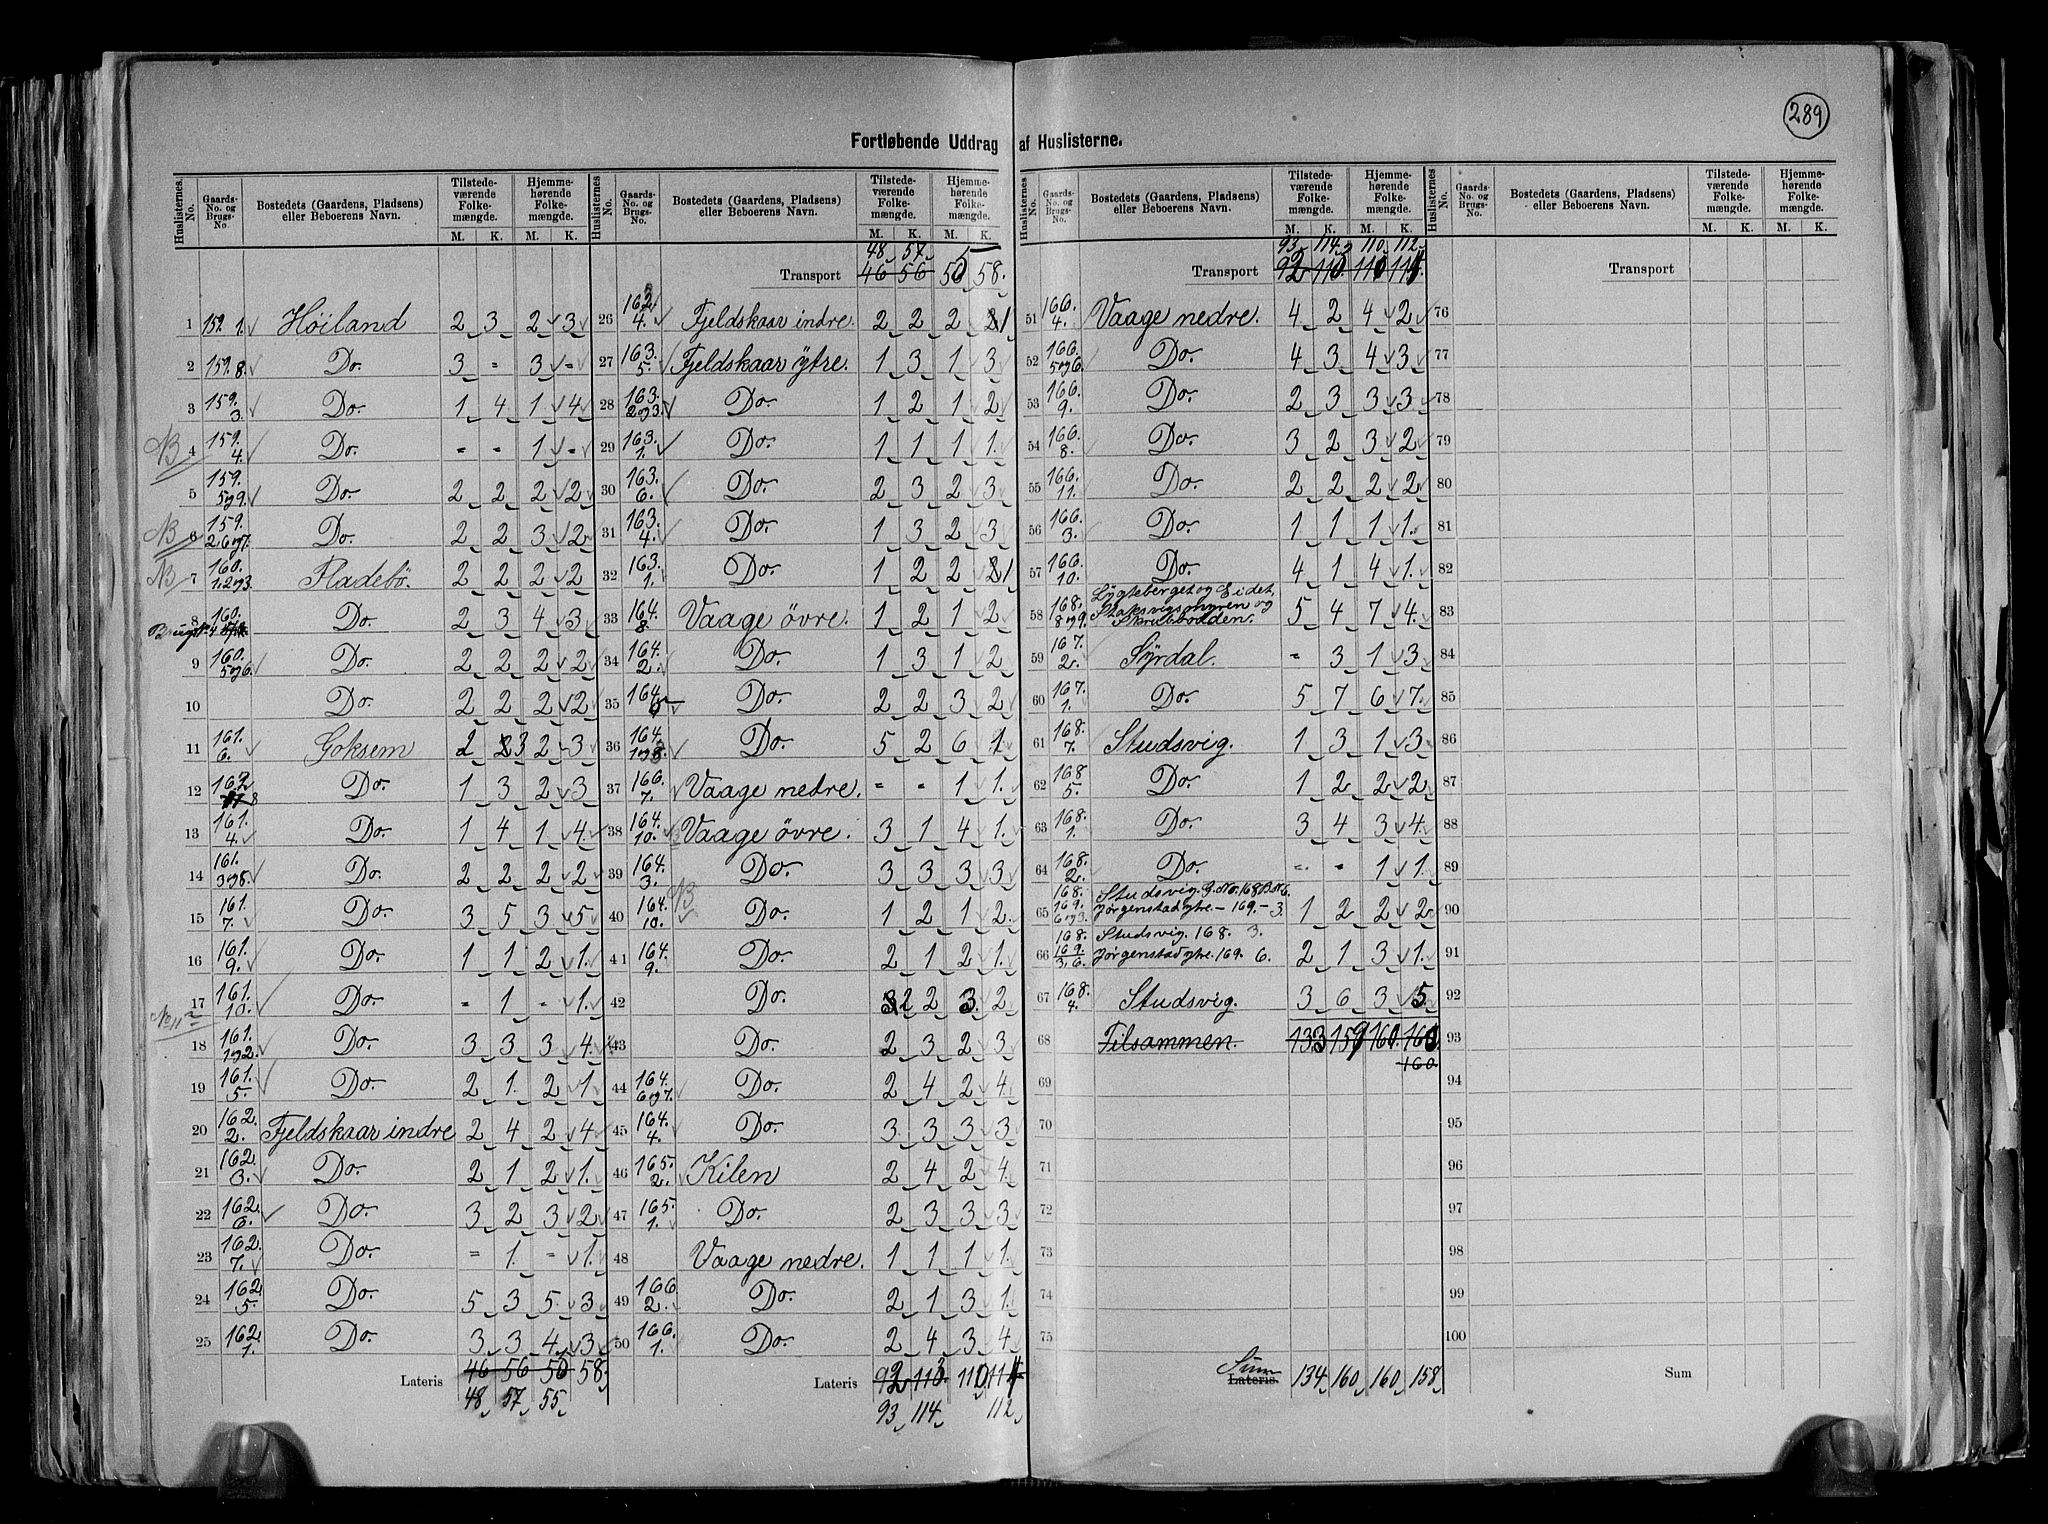 289
Fortløbende Uddrag af Huslisterne.
Huslisternes No. | Gaards-No. og Brugs-No. | Bostedets (Gaardens, Pladsens) eller Beboerens Navn. | Tilstedeværende Folkemængde. M. K. | Hjemmehørende Folkemængde. M. K.
1 159. 1. Höiland 2 3 2 3
2 159. 8. Do. 3 " 3 "
3 159. 3. Do. 1 4 1 4
NB 4 159. 4. Do. " " 1 "
5 159. 5 og 9. Do. 2 2 2 2
NB 6 159. 2. 6 og 7. Do. 2 2 3 2
NB 7 160. 1. 2 og 3. Fladebö. 2 2 2 2
8 160. Do. 2 3 4 3
9 160. 5 og 6. Do. 2 2 2 2
10 Do. 2 2 2 2
11 161. 6. Goksem 2 3 2 3
12 Do. 1 3 2 3
13 161. 4. Do. 1 4 1 4
14 161. 3 og 8. Do. 2 2 2 2
15 161. 7. Do. 3 5 3 5
16 161. 9. Do. 1 1 2 1.
17 161. 10. Do. " 1 " 1.
18 161. 1 og 2. Do. 3 3 3 4.
19 161. 5. Do. 2 1. 2 1
20 162. 2. Fjeldskaar indre 2 4 2 4
21 162. 3. Do. 2 1 2 1.
22 162. 6. Do. 3 2 3 2
23 162. 7. Do. " 1. " 1.
24 162. 5. Do. 5 3 5. 3
25 162. 1. Do. 3 3 4. 3
Lateris 46 56 50 58.
48 57 55
Transport 46 56 50 58.
48 57 5
26 162. 4. Fjeldskaar indre. 2 2 2 1
27 163. 5. Fjeldskaar ytre. 1 3 1 3
28 163. 2 og 3. Do. 1 2 1 2
29 163. 1. Do. 1 1 1 1.
30 163. 6. Do. 2 3 2 3
31 163. 4. Do. 1 3 2 3
32 163. 1. Do. 1 2 2 1
33 164. 8. Vaage övre. 1 2 1 2
34 164. 2. Do. 1 3 1 2
35 164. Do. 2 2 3 2
36 164. Do. 5 2 6 1
37 166. 7. Vaage nedre. " " 1 1.
38 164. 10. Vaage övre. 3 1 4 1.
39 164. 3. Do. 3 3 3 3
NB 40 164. 10. Do. 1 2 1 2.
41 164. 9. Do. 2 1 2 1.
42 Do. 2 2 3. 2
43 Do. 2 3 2 3
44 164. 6 og 7. Do. 2 4 2 4.
45 164. 4. Do. 3. 3 3 3
46 165. 2. Kilen 2 4 2 4.
47 165. 1. Do. 2 3 3 3
48 Vaage nedre. 1 1 1 1.
49 166. 2. Do. 2 1 3 1.
50 166. 1. Do. 2 4 3 4
Lateris 92 113. 110 114
93 114 112
Transport 92 113 110 114
93 114 110 112
51 166. 4. Vaage nedre. 4 2 4 2
52 166. 5 og 6. Do. 4 3 4 3
53 166. 9. Do. 2 3 3 3
54 166. 8. Do. 3 2 3 2
55 166. 11. Do. 2 2 2 2
56 166. 3. Do. 1 1 1 1.
57 166. 10. Do. 4 1 4 1.
58 168. 8 og 9. Lygteberget og Eidet, Staksvigsmyren og Skrubbodden. 5 4 7 4.
59 167. 2. Syrdal. " 3 1 3
60 167. 1. Do. 5 7 6 7.
61 168. 7. Studsvig. 1 3 1 3
62 168. 5. Do. 1 2 2 2
63 168. 1. Do. 3 4 3 4
64 168. 2. Do. " " 1 1.
65 168. 169. 6 og 3. Studsvig. G. No. 168 B. N. 6. Jörgenstad ytre – 169. – 3. 1 2 2 2
66 168. 169. 3. 6. Studsvig. 168. 3. Jörgenstad ytre. 169. 6. 2 1 3 1.
67 168. 4. Studsvig. 3 6 3 5
68 Tilsammen. 133 159 160. 160
160.
69
70
71
72
73
74
75
Sum Lateris. 134 160 160 158
Huslisternes No. | Gaards-No. og Brugs-No. | Bostedets (Gaardens, Pladsens) eller Beboerens Navn. | Tilstedeværende Folkemængde. M. K. | Hjemmehørende Folkemængde. M. K.
Transport
76
77
78
79
80
81
82
83
84
85
86
87
88
89
90
91
92
93
94
95
96
97
98
99
100
Sum